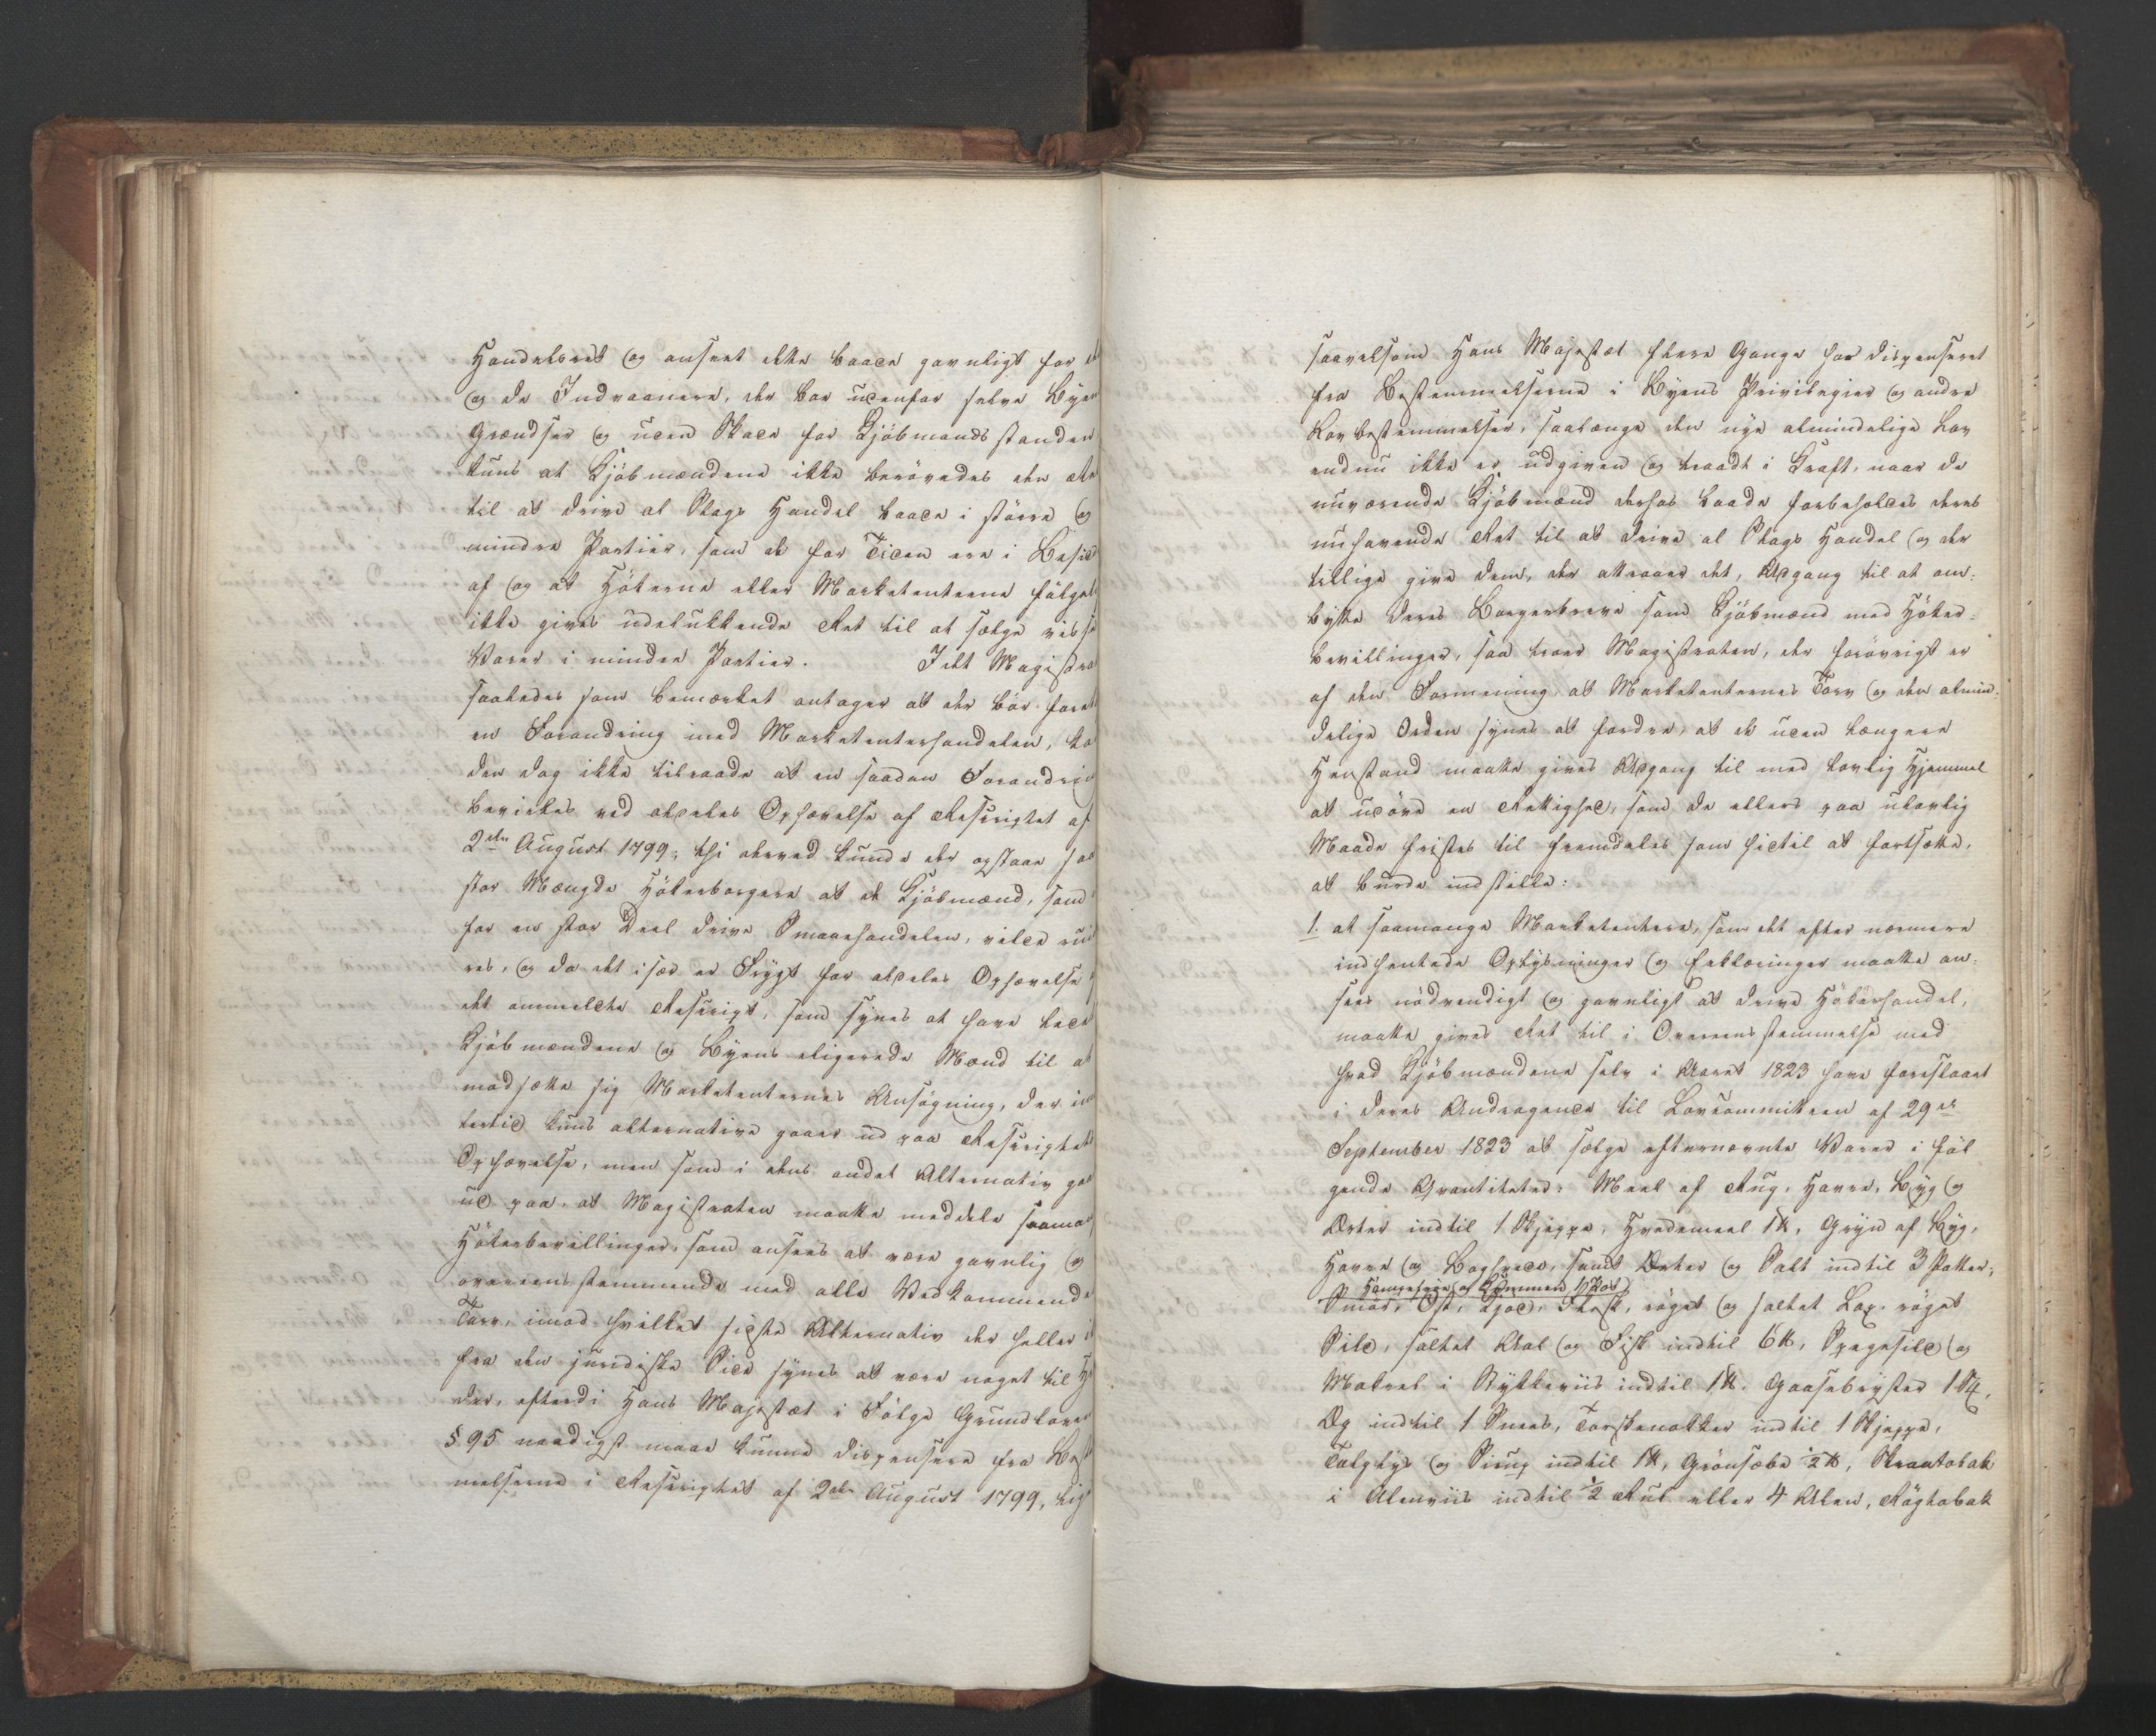 Handelsret og anseet dette baade gavnligt for d
og de Indvaanere, der boe udenfor selve Byen
Grændser og uden Skade for Kjöbmandsstanden
kuns at Kjöbmændene ikke berövedes den Ret
til at drive al Slags Handel baade i större og
mindre Partier, som de for Tiden ere i Besid
af og at Hökerne eller Marketenterne fölgel
ikke gives udelukkende Ret til at sælge visse
Varer i mindre Partier. Idet Magistra
saaledes som bemærket antager at der bör foret
en Forandring med Marketenterhandelen, ka
den dog ikke tilraade at en saadan Forandrin
bevirkes ved aldeles Ophævelse af Rescriptet af
2den August 1799, thi derved kunde der opstaae saa
stor Mængde Hökerborgere at de Kjöbmænd, som
for en stor Deel drive Smaaehandelen, vilde rui
res, og da det især er Frygt for aldeles Ophævelse
det ommeldte Rescript, som synes at have lede
Kjöbmændene og Byens eligerede Mænd til at
modsætte sig Marketenternes Ansögning, der im
lertid kuns alternative gaaer ud paa Rescriptet
Ophævelse, men som i dens andet Alternativ gaa
ud paa, at Magistraten maatte meddele saaman
Hökerbevillinger, som ansees at være gavnlig og
overeensstemmende med alle Vedkommende
Tarv, imod hvilket sidste Alternativ der heller i
fra den juridiske Side synes at være noget til Hi
der, efterdi Hans Majestæt i Fölge Grundloven
§ 95 naadigst maae kunne dispensere fra Best
melserne i Rescriptet af 2den August 1799, lig
saavelsom Hans Majestæt flere Gange har dispenseret
fra Bestemmelserne i Byens Privilegier og andre
Lovbestemmelser, saalænge den nye almindelige Lov
endnu ikke er udgiven og traadt i Kraft, naar de
nuværende Kjöbmænd derhos baade forbeholdes deres
nuhavende Ret til at drive al Slags Handel og der
tillige give dem, der attraaer det, Adgang til at om-
bytte deres Borgerbreve som Kjöbmænd med Höker-
bevillinger, saa troer Magistraten, der forövrigt er
af den Formening at Marketenternes Tarv og den almin-
delige Orden synes at fordre, at de uden længere
Henstand maatte gives Adgang til med lovlig Hjemmel
at udöve en Rettighed, som de ellers paa ulovlig
Maade fristes til fremdeles som hidtil at fortsætte,
at burde indstille:
1. at saamange Marketentere, som det efter nærmere
indhentede Oplysninger og Erklæringer maatte an-
sees nödvendigt og gavnligt at drive Hökerhandel,
maatte gives Ret til i Overeensstemmelse med
hvad Kjöbmændene selv i Aaret 1823 have foreslaaet
i deres Andragende til Lovcommitteen af 29de
September 1823 at sælge efternævnte Varer i föl
gende Qvantiteter: Meel af Rug, Havre, Byg og
Ærter indtil 1 Skjeppe, Hvedemeel 1 ℔, Gryn af Byg,
Havre og Boghvede, samt Ærter og Salt indtil 3 Potter,
Hampefröe og Kummen 1/2 Pot
Smör, Ost, Kjöd, Flesk, röget og saltet Lax, röget
Sild, saltet Aal og Fisk indtil 6 ℔, Spegesild og
Makrel i Stykkeviis indtil 1 ℔, Gaasebryster 1 St,
Æg indtil 1 Snees, Torskenakker indtil 1 Skjeppe,
Talglys og Sirup indtil 1 ℔, Grönsæbe 1/2 ℔, Skraatobak
i Aleviis indtil 1/2 Rul eller 4 Alen, Rögtobak